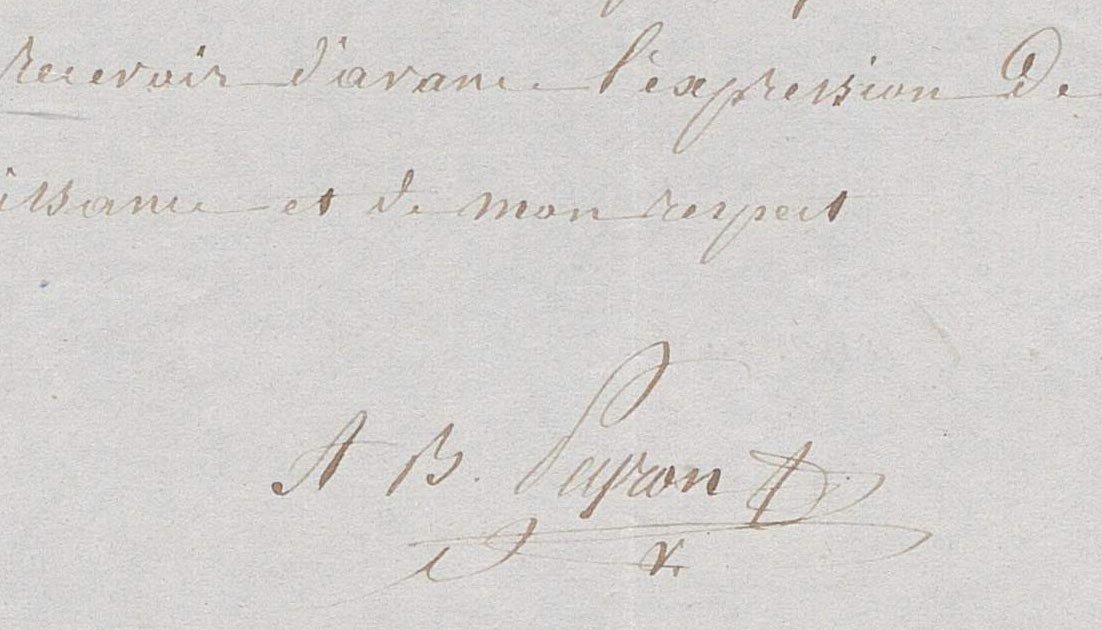 recevoir d'avance l'expression de
issance et de mon respect
A B. Payron